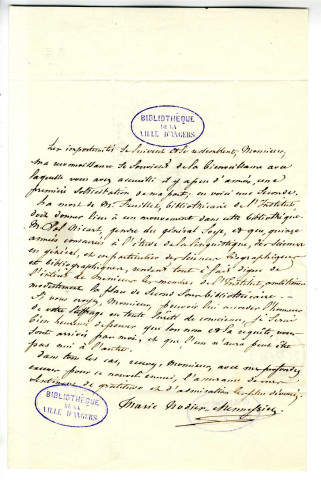 BIBLIOTHÈQUE
DE LA
VILLE D'ANGERS
Les importunités se suivent et se ressemblent, Monsieur,
ma reconnaissance se souvient de la bienveillance avec
laquelle vous avez accueilli il y a peu d'années, une
première sollicitation de ma part, en voici une seconde.
La mort de M. Feuillet, bibliothécaire de l'Institut,
doit donner lieu à un mouvement dans cette bibliothèque.
M. Pol Nicart, gendre du général Saye, et que, quinze
années consacrées à l'étude de la linguistique, des sciences
en général, et en particulier des sciences géographiques
et bibliographiques, rendent tout à fait digne de
l'intérêt de Messieurs les membres de l'Institut, ambitionne
modestement la place de second sous bibliothécaire.
Si vous croyez, Monsieur, pouvoir lui accorder l'honneur
de votre suffrage en toute liberté de conscience, je serai
bien heureuse de penser que son nom et sa requête, vous
sont arrivés par moi, et que l'un n'aura peut être
pas nui à l'autre.
Dans tous les cas, excusez, Monsieur, avec ma profonde
excuse pour ce nouvel ennui, l'assurance de mes
sentimens de gratitude et d'admiration les plus dévoués.
Marie Nodier Mennessier
BIBLIOTHÈQUE
DE LA
VILLE D'ANGERS